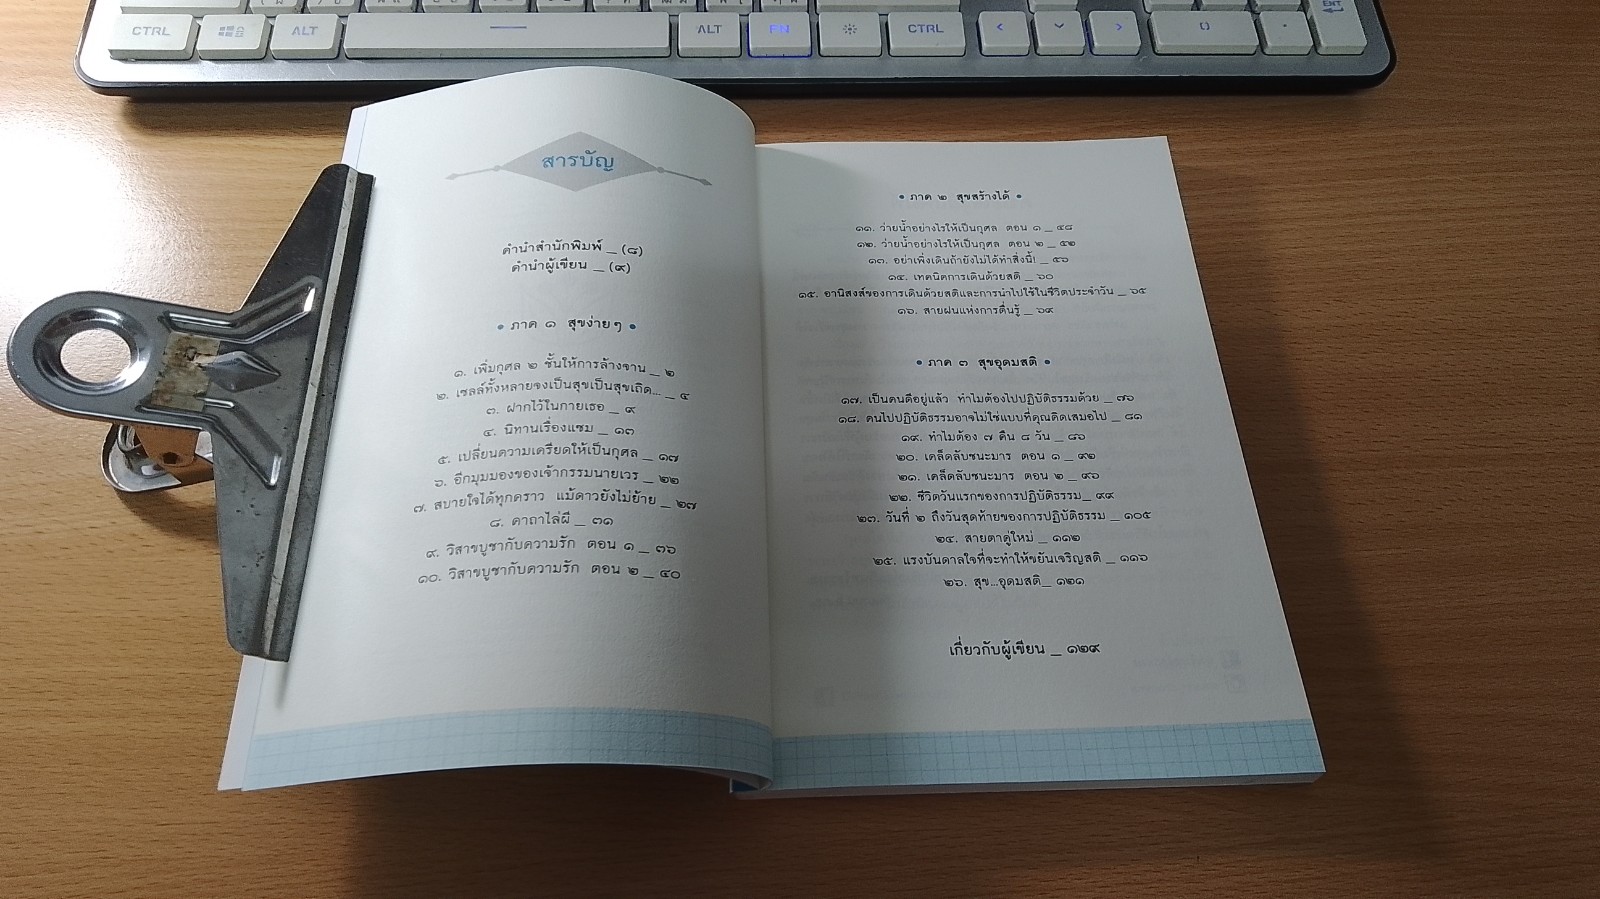 CTRL
ALT
ALT
EN
CTRL
ENT
สารบัญ
คำนำสำนักพิมพ์ _ (๘)
คำนำผู้เขียน _ (๙)
• ภาค ๑ สุขง่ายๆ •
๑. เพิ่มกุศล ๒ ชั้นให้การล้างจาน _ ๒
๒. เซลล์ทั้งหลายจงเป็นสุขเป็นสุขเถิด... _ ๔
๓. ฝากไว้ในกายเธอ _ ๙
๔. นิทานเรื่องแซม _ ๑๓
๕. เปลี่ยนความเครียดให้เป็นกุศล _ ๑๗
๖. อีกมุมมองของเจ้ากรรมนายเวร _ ๒๒
๗. สบายใจได้ทุกคราว แม้ดาวยังไม่ย้าย _ ๒๗
๘. คาถาไล่ผี _ ๓๑
๙. วิสาขบูชากับความรัก ตอน ๑ _ ๓๖
๑๐. วิสาขบูชากับความรัก ตอน ๒ _ ๔๐
• ภาค ๒ สุขสร้างได้ •
๑๑. ว่ายน้ำอย่างไรให้เป็นกุศล ตอน ๑ _ ๔๘
๑๒. ว่ายน้ำอย่างไรให้เป็นกุศล ตอน ๒ _ ๕๒
๑๓. อย่าเพิ่งเดินถ้ายังไม่ได้ทำสิ่งนี้! _ ๕๖
๑๔. เทคนิคการเดินด้วยสติ _ ๖๐
๑๕. อานิสงส์ของการเดินด้วยสติและการนำไปใช้ในชีวิตประจำวัน _ ๖๕
๑๖. สายฝนแห่งการตื่นรู้ _ ๖๙
• ภาค ๓ สุขอุดมสติ •
๑๗. เป็นคนดีอยู่แล้ว ทำไมต้องไปปฏิบัติธรรมด้วย _ ๗๖
๑๘. คนไปปฏิบัติธรรมอาจไม่ใช่แบบที่คุณคิดเสมอไป _ ๘๑
๑๙. ทำไมต้อง ๗ คืน ๘ วัน _ ๘๖
๒๐. เคล็ดลับชนะมาร ตอน ๑ _ ๙๒
๒๑. เคล็ดลับชนะมาร ตอน ๒ _ ๙๖
๒๒. ชีวิตวันแรกของการปฏิบัติธรรม_ ๙๙
๒๓. วันที่ ๒ ถึงวันสุดท้ายของการปฏิบัติธรรม _ ๑๐๕
๒๔. สายตาคู่ใหม่ _ ๑๑๒
๒๕. แรงบันดาลใจที่จะทำให้ขยันเจริญสติ _ ๑๑๖
๒๖. สุข...อุดมสติ_ ๑๒๑
เกี่ยวกับผู้เขียน _ ๑๒๙